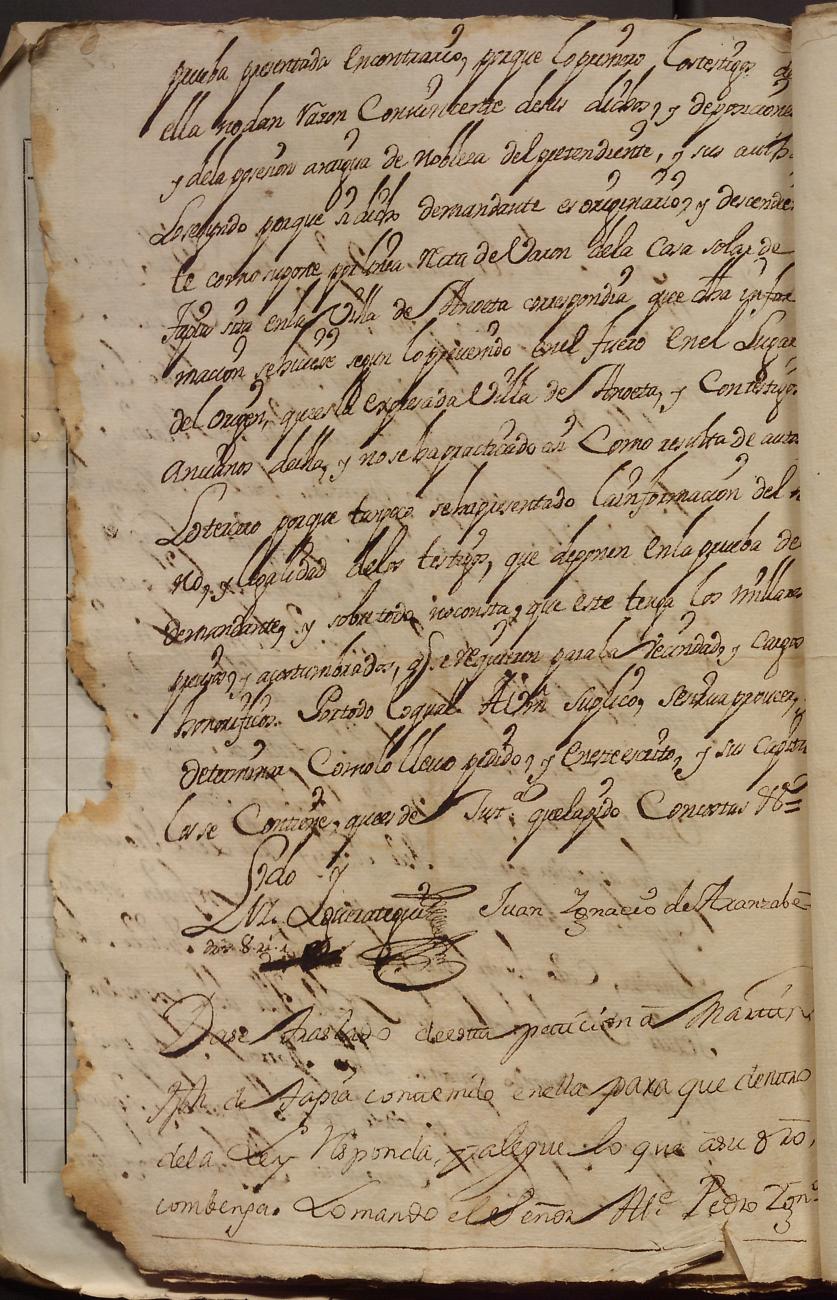 prueba presentada en contrario, porque lo primero los testigos de
ella no dan razon convincente de sus dichos, y deposiciones
y de la posesion antigua de nobleza del pretendiente, y sus auth
Lo segundo porque si dicho demandante es originario, y descendien
te como supone por linea recta de Varon de la Casa solar de
Tapia sita en la Villa de Anoeta correspondia que dha infor
macion se hiciese segun lo prevenido en el fuero en el Lugar
del origen, que es la expresada Villa de Anoeta, y con testigos
ancianos de ella, y no se ha practicado asi como resulta de autos
Lo tercero porque tampoco se ha presentado la informacion del
no, y legalidad de los testigos, que deponen en la prueba de
demandante, y sobre todo no consta, que este tenga los millares
precisos, y acostumbrados, q se requieren para la vecindad, y cargos
honorificos. Por todo lo qual A Vm suplico, se sirva proveer, y
determinar como lo llevo pedido, y en este escrito, y sus capitu
los se contiene, que es de Justa que la pido con costas &a
Lizdo Juan Ignacio de Aranzabe
Dase traslado de esta peticion a Martin
de Tapia contenido en ella para que dentro
de la Ley responda, y alegue lo que a su dro,
combenga. Lo mando el Señor Alce Pedro Ign